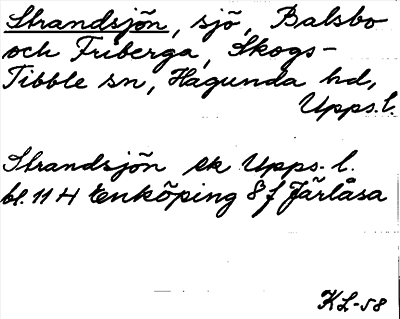 Strandsjön, sjö, Balsbo
och Friberga, Skogs-
Tibble sn, Hagunda hd,
Upps. l.
Strandsjön ek Upps. l.
bl. 11 H Enköping 8 f Järlåsa
KL-58